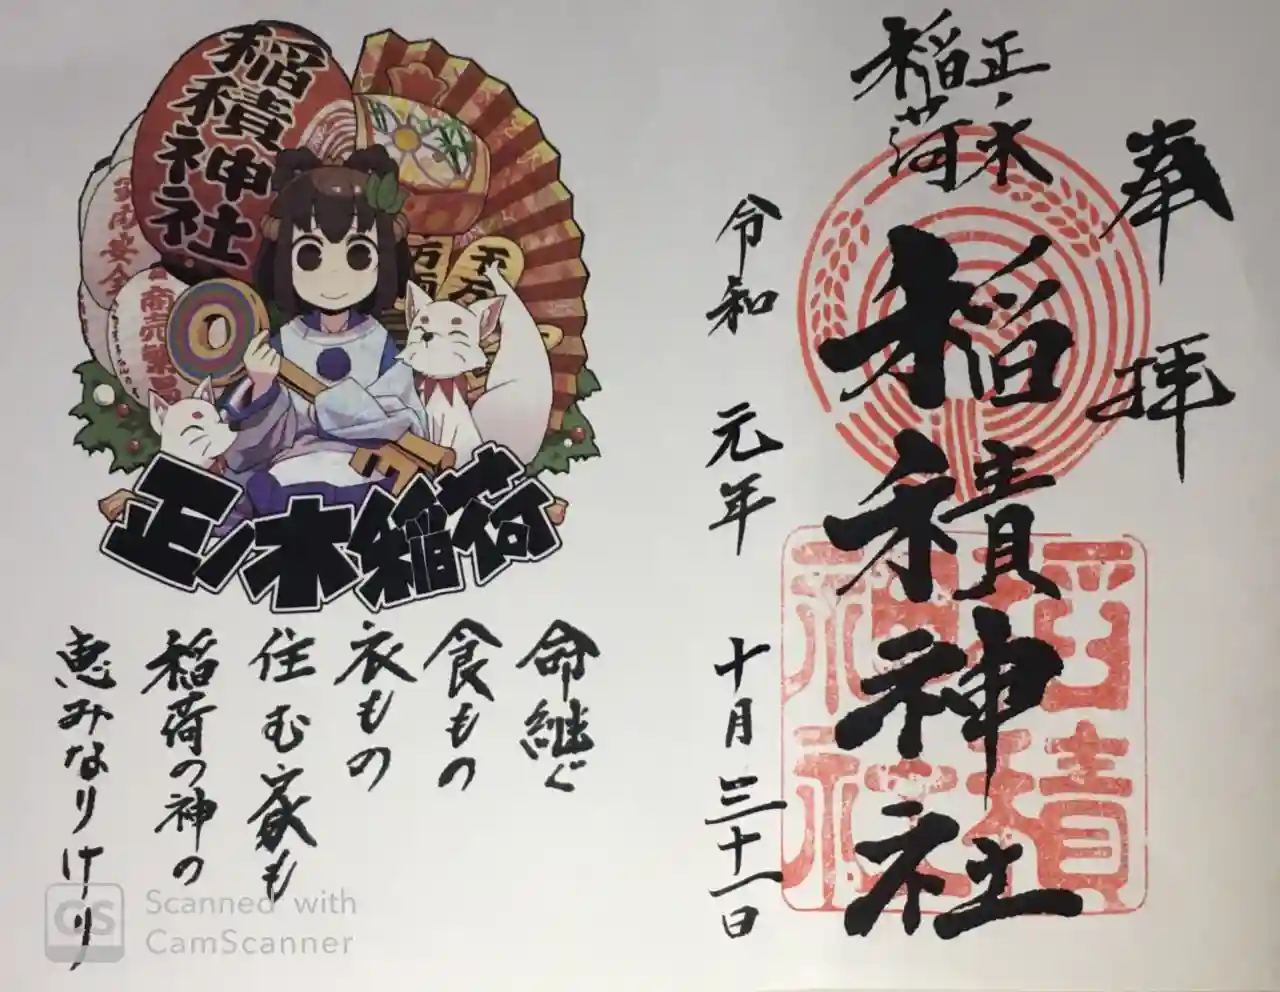 奉拝
正ノ木
稲荷
稲積神社
稲積
神社
令和元年十月三十一日
稲積神社
商売繁昌
五万
万両
正ノ木稲荷
命継ぐ
食もの
衣もの
住む家も
稲荷の神の
恵みなりけり
CS
Scanned with
CamScanner